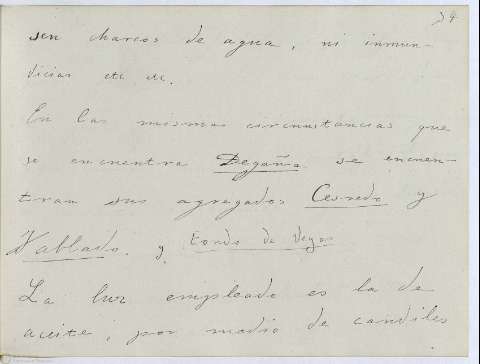 34
sen charcos de agua, ni inmun-
dicias etc etc.
En las mismas circunstancias que
se encuentra Degaña se encuen-
tran sus agregados Cerredo y
Tablado y Fondo de Vega
La luz empleada es la de
aceite, por medio de candiles